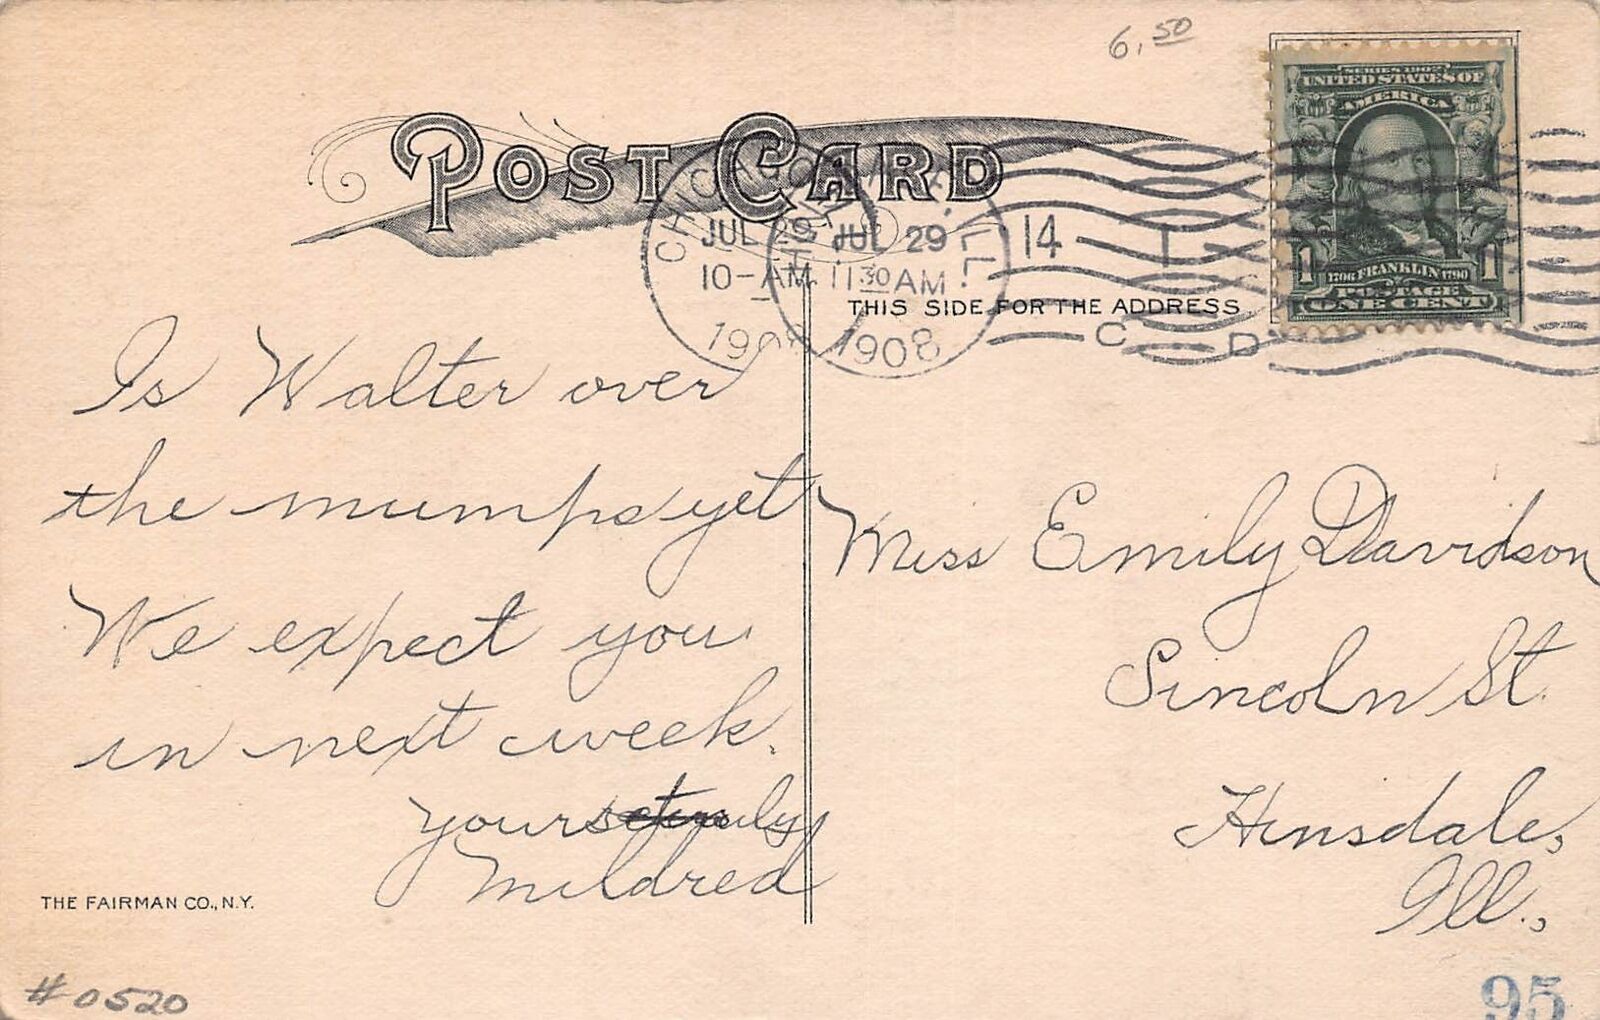 6.50
SERIES 1902
UNITED STATES OF
AMERICA
POST CARD
CHICAGO ILL.
JUL 29 JUL 29 14 1
10-AM 11 30 AM
1 1706 FRANKLIN 1790 1
POSTAGE
ONE CENT
THIS SIDE FOR THE ADDRESS
1908 1908 C D
Is Walter over
the mumps yet
We expect you
in next week.
yours truly
Mildred
Miss Emily Davidson
Lincoln St.
Hinsdale,
Ill.,
THE FAIRMAN CO., N.Y.
#0520
95